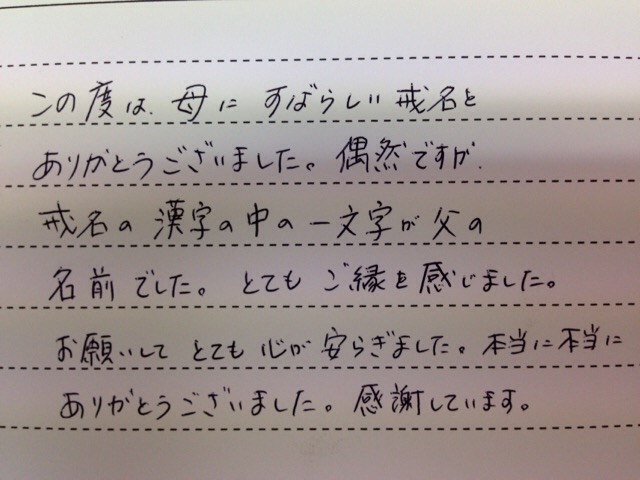 この度は、母に すばらしい戒名を
ありがとうございました。偶然ですが、
戒名の漢字の中の一文字が父の
名前でした。とても ご縁を感じました。
お願いして とても 心が安らぎました。本当に本当に
ありがとうございました。感謝しています。